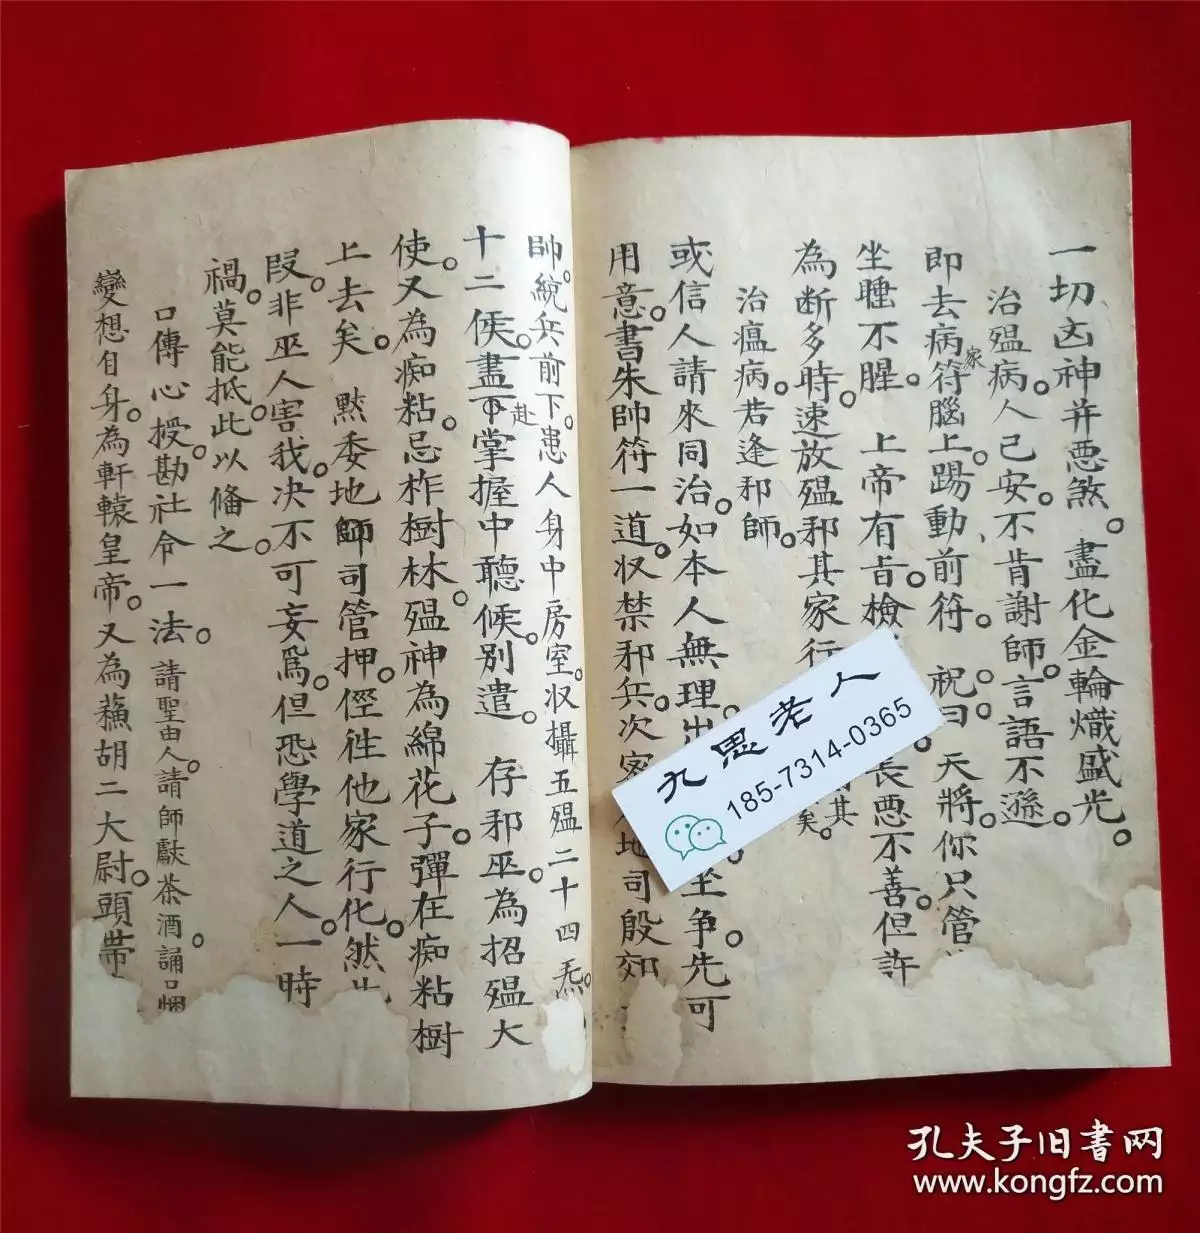 一切凶神并惡煞。盡化金輪熾盛光。
治殟病。人已安。不肯謝師。言語不遜。
即去病家符腦上。踢動前符。祝曰。天將。你只管
坐睡不腥。上帝有旨。檢 長惡不善。但許
為断多時。速放殟邪其家行 其
矣。
治瘟病。若逢邪師。
或信人請來同治。如本人無理出 坐争先可
用意。書朱帥符一道。収禁邪兵。次 地司殷郊
帥。統兵前下。患人身中房室。収攝五殟二十四炁。
十二候。盡下赴掌握中聽候。別遣。存邪巫。為招殟大
使。又為痴粘。忌柞樹林。殟神為綿花子。彈在痴粘樹
上去矣。默委地師司管押。徑往他家行化。然
段。非巫人害我。决不可妄爲。但恐學道之人。一時
禍。莫能抵。此以俻之。
口傳心授。勘社令一法。請聖由人。請師獻茶酒。誦
變想自身。為軒轅皇帝。又為蘓胡二大尉。頭帶
九思老人
185-7314-0365
孔夫子旧书网
www.kongfz.com